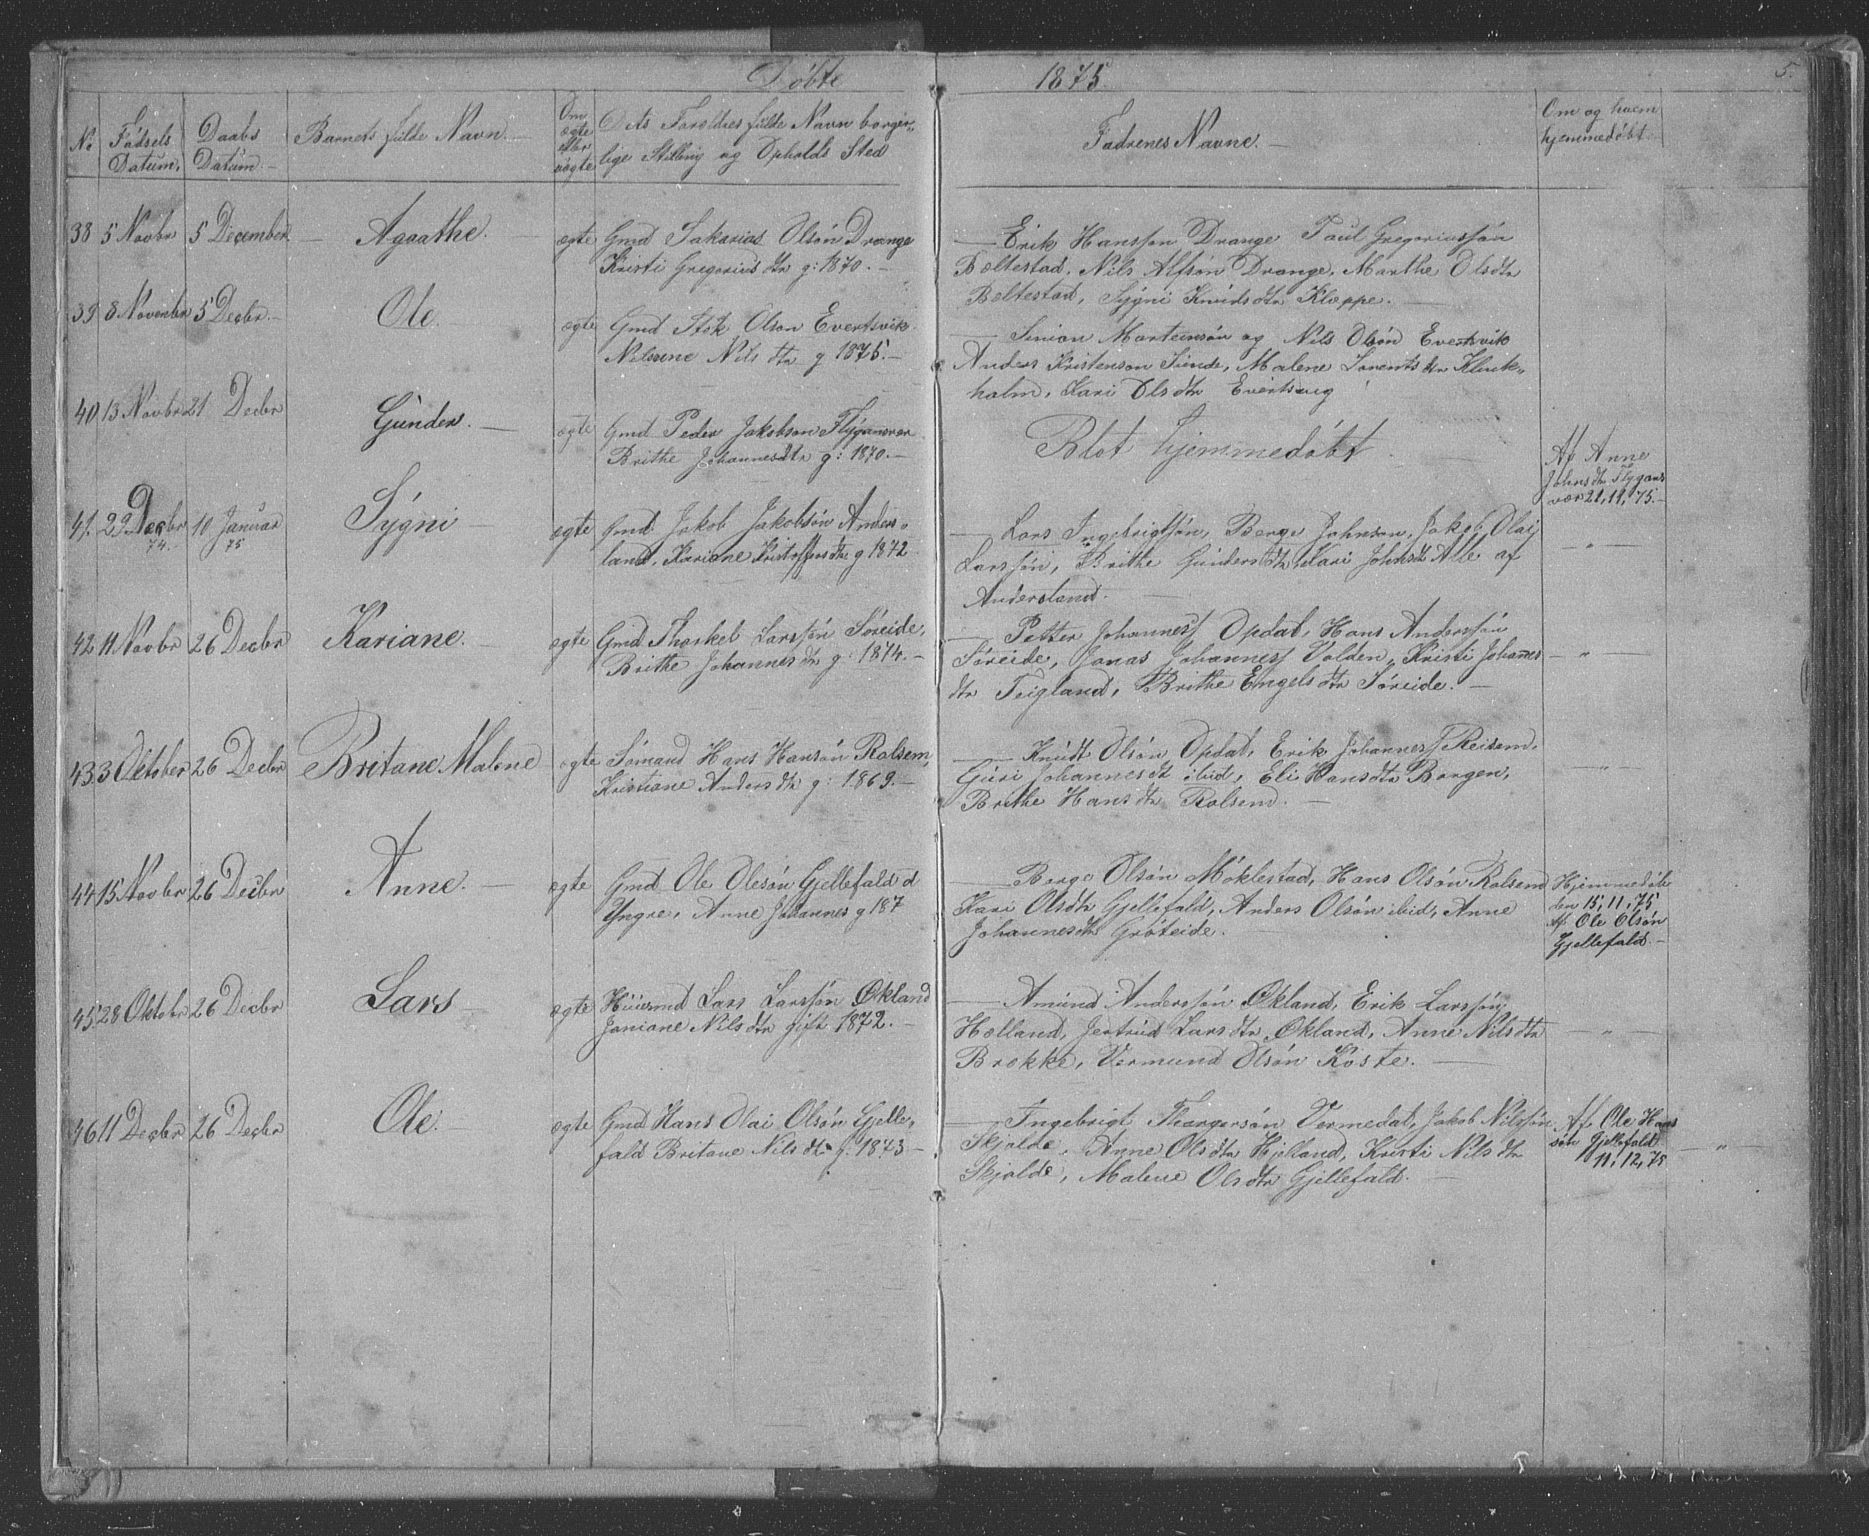 Døbte 1875. 5.
No Fødsels Datum. Daabs Datum. Barnets fulde Navn. Om ægte eller uægte Dets Foroldres fulde Navn borger- lige Stilling og Opholds Sted Fadrenes Navne. Om og hvem hjemmedøbt.
38 5 Novbr 5 December Agaathe. ægte Gmd Sakarias Olsøn Drange
Kristi Gregorius dtr g: 1870.
Erik Hanssøn Drange Paul Gregoriussøn
Beltestad, Nils Alfsøn Drange, Marthe Olsdtr
Beltestad, Sygni Knudsdtr Kleppe.
39 8 Novembr 5 Decbr. Ole. ægte Gmd Olson Evertsvik.
Nilsine Nils dtr g 1875.
Simion Morteinsøn og Nils Olsøn Evertsvik
Anders Kristenson Malene Lorents dtr
holm, Kari Olsdtr
40 13 Novbr 21 Decbr Gunder. ægte Gmd Peder Jakobson Flyganvær
Brithe Johannesdtr g: 1870.
Blot hjemmedøbt.
Af Anne
Johnsdtr Flygans
vær 21, 11, 75.
41. 29 Decbr 74. 10 Januar 75 Sygni ægte Gmd Jakob Jakobsøn Anders-
land, Kariane Kristoffersdtr g 1872
Lars Ingebrigtsøn, Berge Johnson, Jakob Olai
Larssøn, Brithe Gundersdtr, Kari Johnsdt Alle af
Andersland.
"
42 11 Novbr 26 Decbr Kariane. ægte Gmd Thorkel Larssøn Søreide,
Brithe Johannes dtr g: 1874.
Petter Johanness Opdal, Hans Anderssøn
Søreide, Jonas Johanness Valden, Kristi Johannes
dtr Teigland, Brithe Engels dtr Søreide.
"
43 3 Oktober 26 Decbr Britane Malene ægte Sømand Hans Hansøn Rolsem,
Kristiane Anders dtr g: 1869.
Knudt Olsøn Opdal, Erik Johanness Reisem,
Guri Johannesdt ibid, Eli Hansdtr Borgen,
Brithe Hansdtr Rolsem.
"
44 15 Novbr 26 Decbr Anne. ægte Gmd Ole Olesøn Gjellefald d
Yngre, Anne Johannes g 187
Berge Olsøn Møklestad, Hans Olsøn Rolsem
Kari Olsdtr Gjellefald, Anders Olsøn ibid, Anne
Johannesdtr Grøteide.
Hjemmedøbt
den 15, 11, 75
Af Ole Olsøn
Gjellefald.
45. 28 Oktobr 26 Decbr Lars ægte Huusmd Lars Larssøn Økland
Janiane Nils dtr gift 1872.
Amund Anderssøn Økland, Erik Larssøn
Hølland, Jertrud Larsdtr Økland, Anne Nilsdtr
Brekke, Vermund Olsøn Koste.
"
46 11 Decbr 26 Decbr Ole. ægte Gmd Hans Olai Olsøn Gjelle-
fald Britane Nils dtr g. 1873
Ingebrigt Thorgersøn Vermedal, Jakob Nilssøn
Skjolde, Anne Olsdtr Hjelland, Kristi Nilsdtr
Skjolde, Malene Olsdtr Gjellefald.
Af Ole Hans
søn Gjellefald
11, 12, 75
"